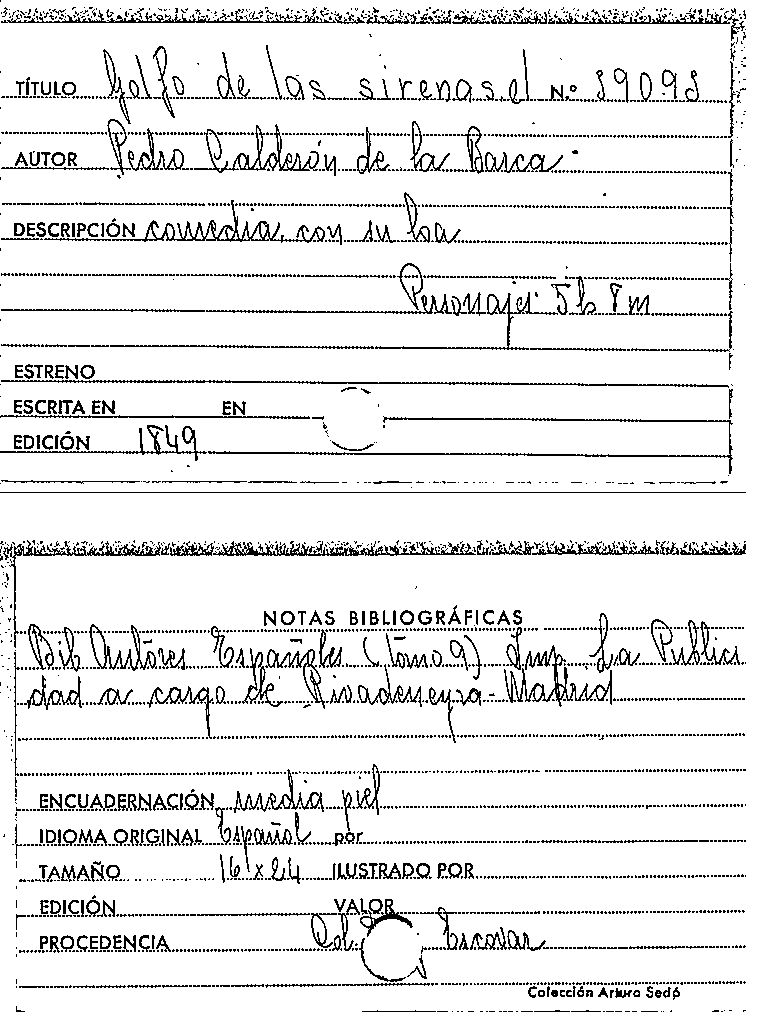 TÍTULO Golfo de las sirenas, el N.º 59095
AUTOR Pedro Calderón de la Barca
DESCRIPCIÓN comedia, con su loa
Personajes 5h 8m
ESTRENO
ESCRITA EN EN
EDICIÓN 1849
NOTAS BIBLIOGRÁFICAS
Bib Autores Españoles (tomo 9) Imp. La Publici
dad a cargo de Rivadeneyra - Madrid
ENCUADERNACIÓN media piel
IDIOMA ORIGINAL Español por
TAMAÑO 16 x 24 ILUSTRADO POR
EDICIÓN VALOR
PROCEDENCIA Col. Escovar
Colección Arturo Sedó